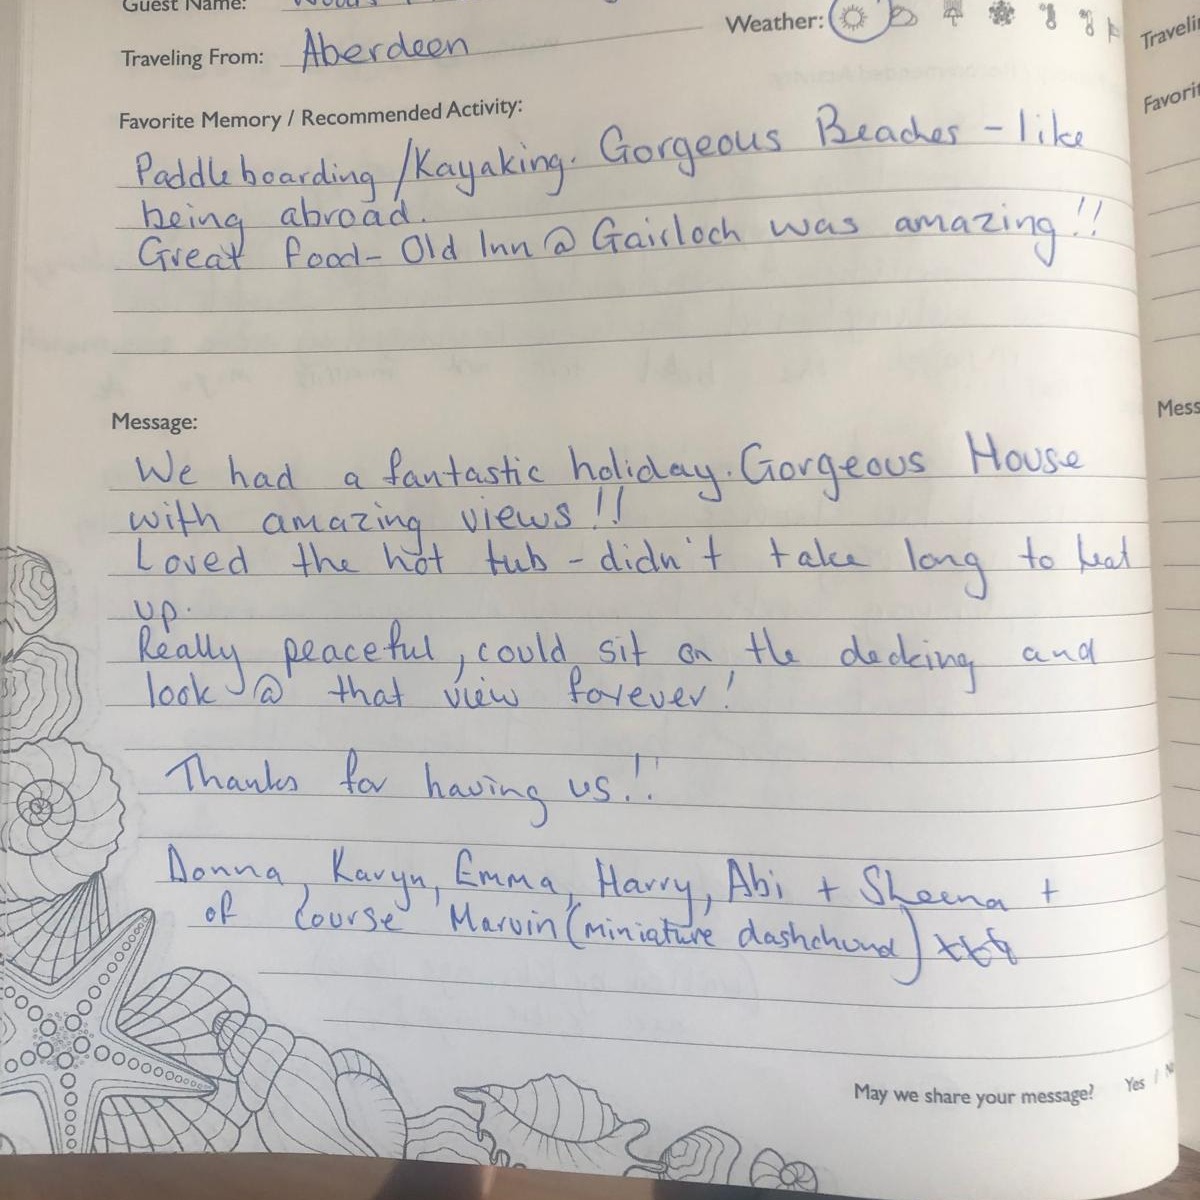 Guest Name:
Weather:
Traveling From: Aberdeen
Favorite Memory / Recommended Activity:
Paddleboarding /Kayaking. Gorgeous Beaches - like
being abroad.
Great food- Old Inn @ Gairloch was amazing!!
Message:
We had a fantastic holiday. Gorgeous House
with amazing views!!
Loved the hot tub - didn't take long to heat
up.
Really peaceful, could sit on the decking and
look @ that view forever!
Thanks for having us!!
Donna, Karyn, Emma, Harry, Abi + Sheena +
of course Marvin (miniature dashchund) xxx
May we share your message? Yes /
Favorit
Mess